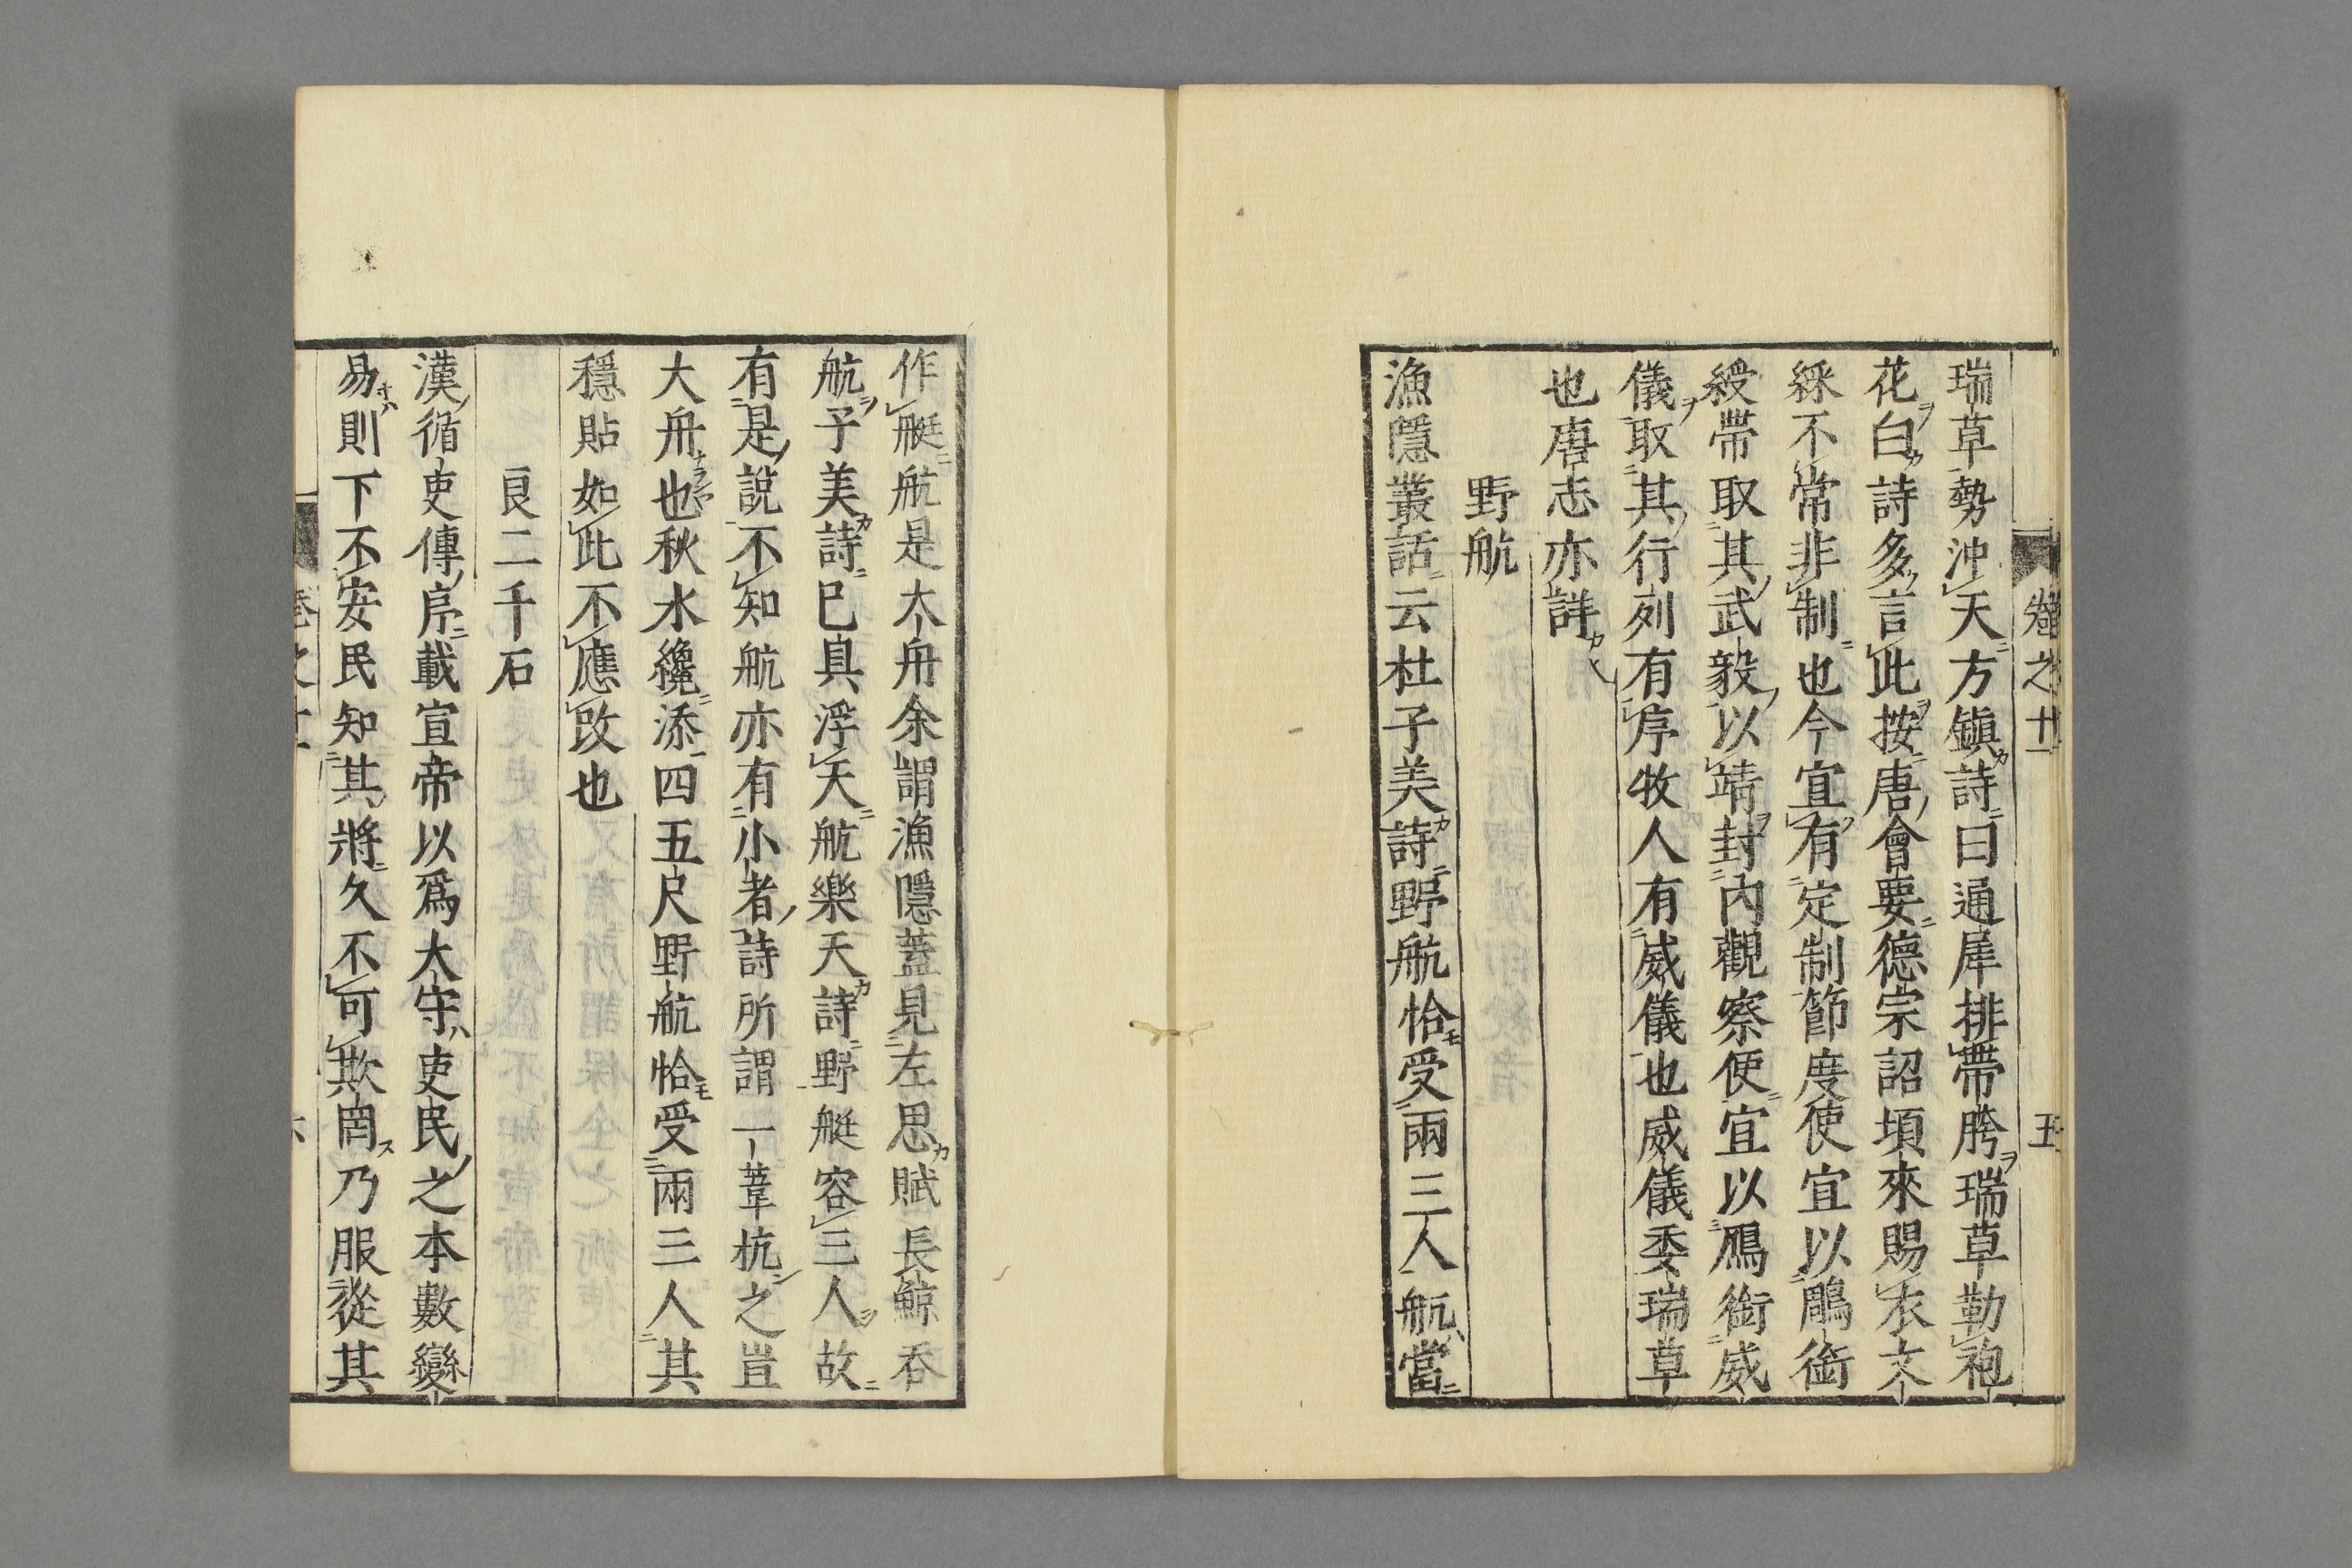 卷之十一 五
瑞草勢沖天方鎮詩曰通犀排帶胯瑞草勒袍
花白詩多言此按唐會要德宗詔頃來賜衣文
綵不常非制也今宜有定制節度使宜以鶻銜
綬帶取其武毅以靖封內觀察使宜以鴈銜威
儀取其行列有序牧人有威儀也威儀委瑞草
也唐志亦詳
野航
漁隱叢話云杜子美詩野航恰受兩三人航當
作艇航是大舟余謂漁隱蓋見左思賦長鯨吞
航子美詩已具浮天航樂天詩野艇容三人故
有是說不知航亦有小者詩所謂一葦杭之豈
大舟也秋水纔添四五尺野航恰受兩三人其
穩貼如此不應改也
良二千石
漢循吏傳序載宣帝以爲大守吏民之本數變
易則下不安民知其將久不可欺罔乃服從其